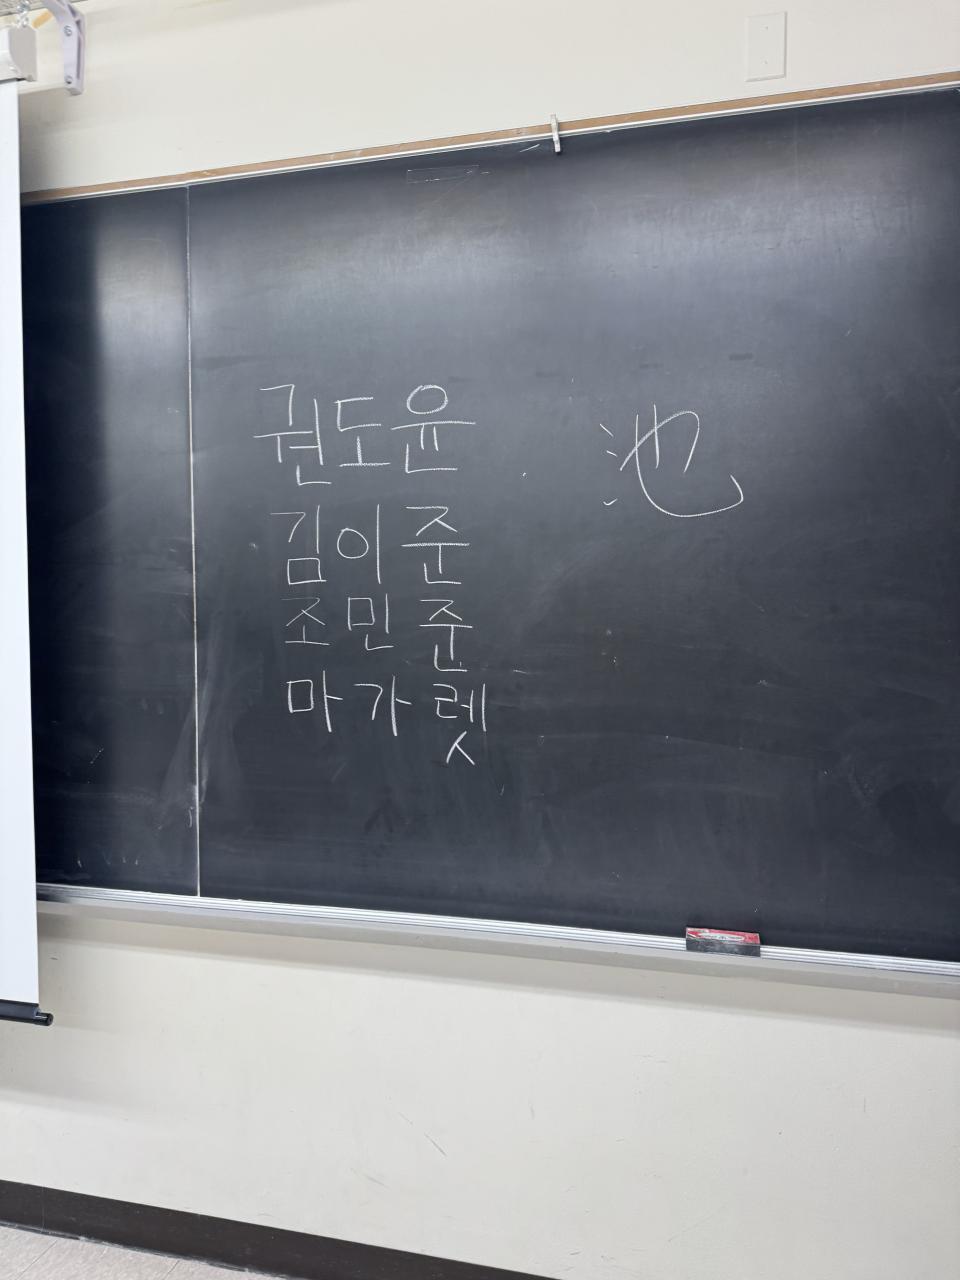 권도윤
김이준
조민준
마가렛
池